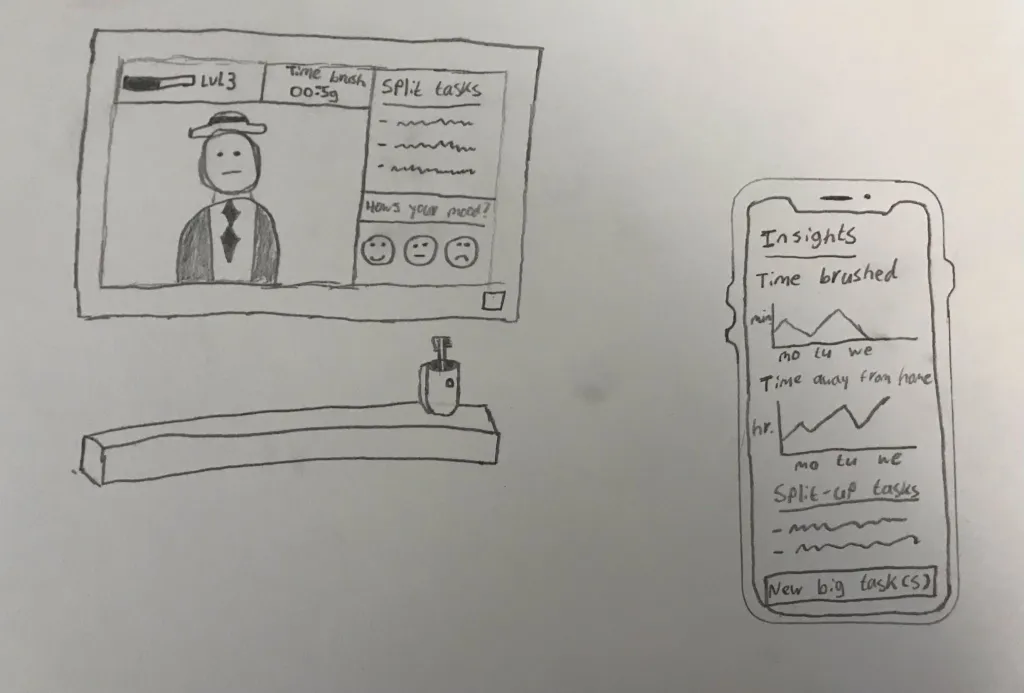 Lvl 3
Time brush
00:59
Split tasks
How's your mood?
Insights
Time brushed
min
mo tu we
Time away from home
hr.
mo tu we
Split-up tasks
New big task(s)